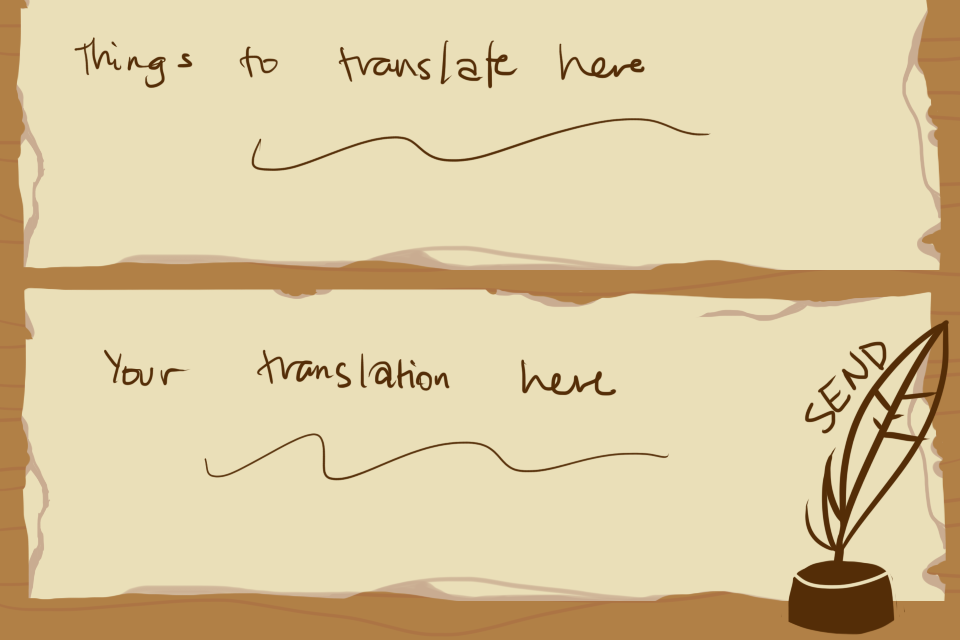 Things to translate here
Your translation here
SEND